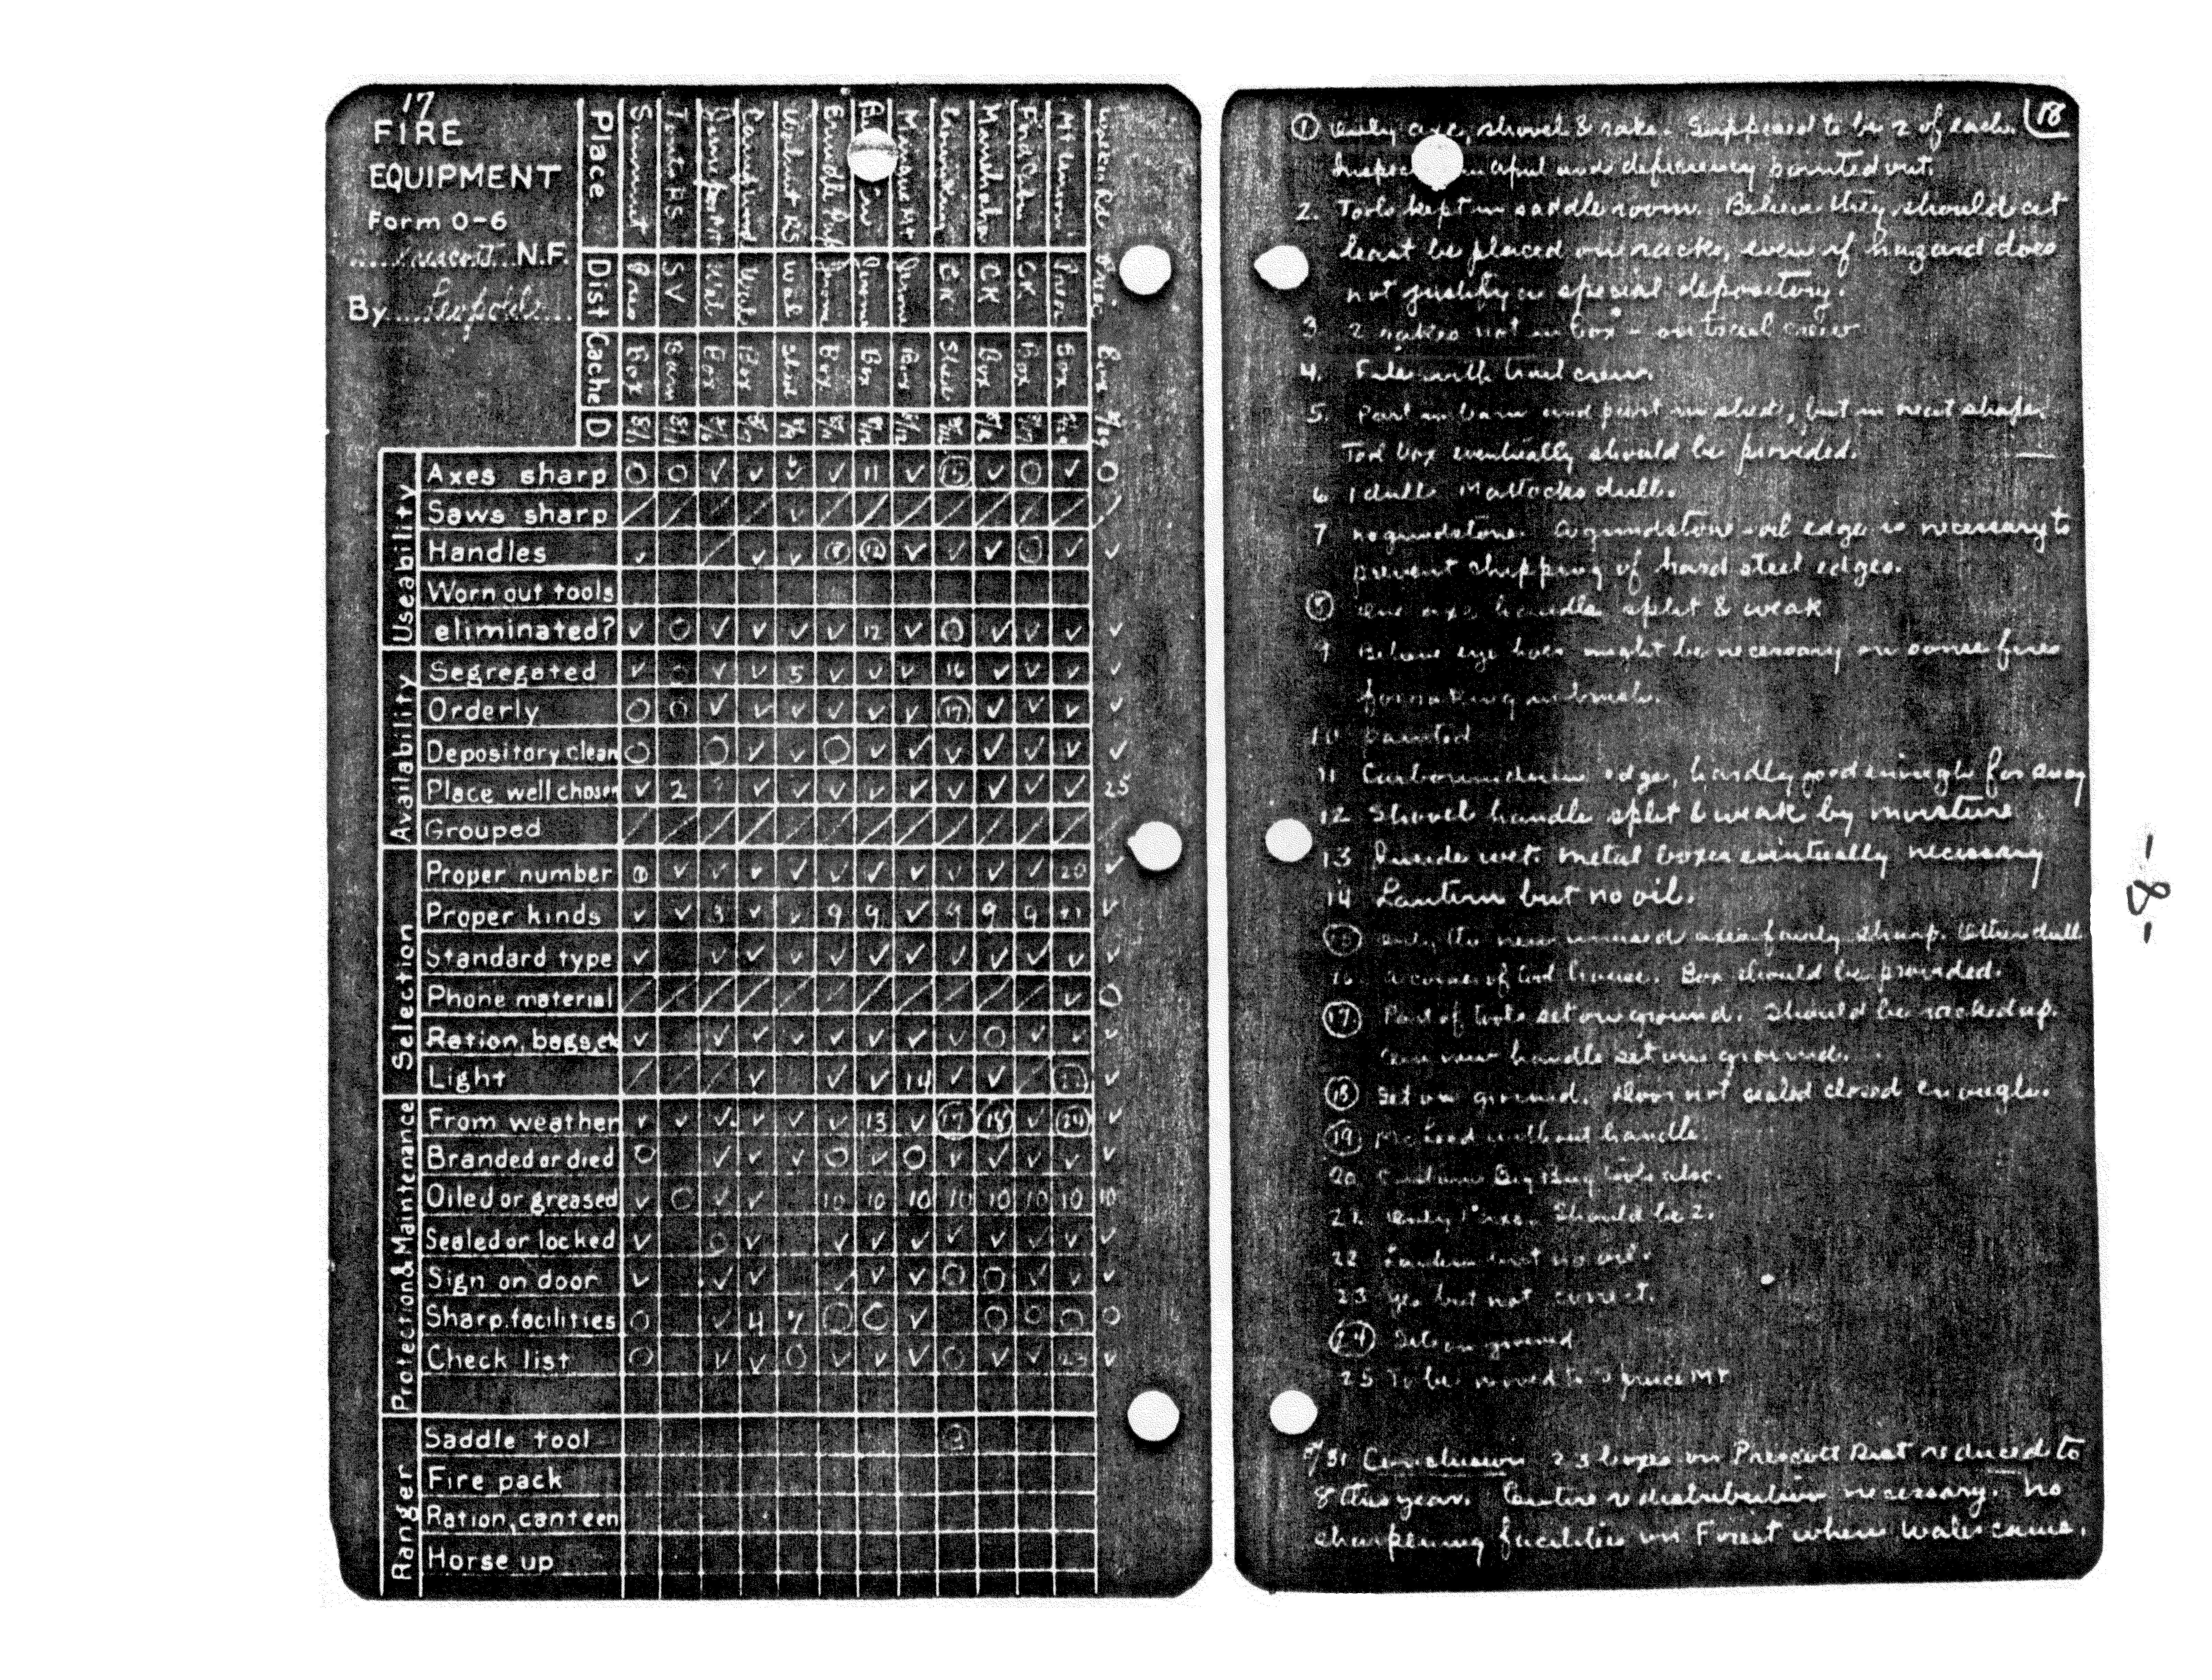 17
FIRE
EQUIPMENT
Form 0-6
Prescott N.F.
By Leopold
Place Summit Walnut RS Mt
Dist Pres SV Wal Wal Wal CK CK CK
Cache Box Barn Box Box Shed Box Box Box Shed Box Box Box Box
D
Useability
Axes sharp O O ✓ ✓ ✓ ✓ 11 ✓ ✓ O ✓ O
Saws sharp / / / / ✓ / / / / / / / /
Handles ✓ / ✓ ✓ (8) (12) ✓ ✓ ✓ ✓ ✓
Worn out tools
eliminated? ✓ O ✓ ✓ ✓ ✓ 12 ✓ ✓ ✓ ✓ ✓
Availability
Segregated ✓ O ✓ ✓ 5 ✓ ✓ ✓ 16 ✓ ✓ ✓ ✓
Orderly O O ✓ ✓ ✓ ✓ ✓ ✓ (17) ✓ ✓ ✓ ✓
Depository clean O O ✓ ✓ O ✓ ✓ ✓ ✓ ✓ ✓ ✓
Place well chosen ✓ 2 ✓ ✓ ✓ ✓ ✓ ✓ ✓ ✓ ✓ 25
Grouped / / / / / / / / / / / / /
Selection
Proper number (1) ✓ ✓ ✓ ✓ ✓ ✓ ✓ ✓ ✓ ✓ 20 ✓
Proper kinds ✓ ✓ 3 ✓ ✓ 9 9 ✓ 9 9 9 21 ✓
Standard type ✓ ✓ ✓ ✓ ✓ ✓ ✓ ✓ ✓ ✓ ✓ ✓
Phone material / / / / / / / / / / / ✓ O
Ration, bags, etc ✓ ✓ ✓ ✓ ✓ ✓ ✓ ✓ O ✓ ✓ ✓
Light / / / ✓ ✓ ✓ 14 ✓ ✓ / (22) ✓
Protection & Maintenance
From weather ✓ ✓ ✓ ✓ ✓ ✓ 13 ✓ (17) (18) ✓ (24) ✓
Branded or died O ✓ ✓ ✓ O ✓ O ✓ ✓ ✓ ✓ ✓
Oiled or greased ✓ O ✓ ✓ 10 10 10 10 10 10 10 10
Sealed or locked ✓ O ✓ ✓ ✓ ✓ ✓ ✓ ✓ ✓ ✓
Sign on door ✓ ✓ ✓ ✓ ✓ ✓ O O ✓ ✓ ✓
Sharp. facilities O ✓ 4 7 O O ✓ O O O O
Check list O ✓ ✓ O ✓ ✓ ✓ O ✓ ✓ 23 ✓
Ranger
Saddle tool
Fire pack
Ration, canteen
Horse up
18
(1) Only axe, shovel & rake. Supposed to be 2 of each.
and deficiency pointed out.
2. Tools kept in saddle room. Believe they should at
least be placed on racks, even if hazard does
not justify a special depository.
3 2 rakes not in box - on trail crew
4. File with trail crew.
5 Part in barn and part in shed, but in neat shape.
Tool box eventually should be provided.
6 1 dull. Mattocks dull.
7 no grindstone. A grindstone-oil edge is necessary to
prevent chipping of hard steel edges.
(8) One axe handle split & weak
9 Believe eye hoes might be necessary on some fires
for working in brush.
10 Painted
11 Carborundum edge, hardly good enough for
12 Shovel handle split & weak by moisture
13 Inside wet. Metal boxes eventually necessary
14 Lantern but no oil.
(15) Only the new unused axes fairly sharp. Other dull
16 A corner of tool house. Box should be provided.
(17) Part of tools set on ground. Should be racked up.
One new handle set on ground.
(18) Set on ground. Door not sealed closed enough.
(19) McLeod without handle.
20 Contains Big Bug tools also.
21. Only 1 axe. Should be 2.
22 Lantern but no oil.
23 Yes but not correct.
(24) Sets on ground
25 To be moved to Spruce Mt
8/31 Conclusion 23 boxes on Prescott Dist reduced to
8 this year. Entire redistribution necessary. No
sharpening facilities on Forest where water came.
-8-